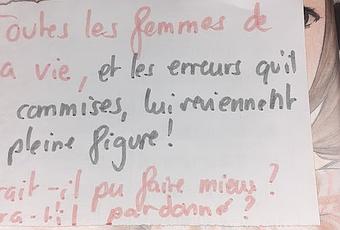 Toutes les femmes de
a vie, et les erreurs qu'il
commises, lui reviennent
pleine figure!
rait-il pu faire mieux?
ra-t'il pardonné?